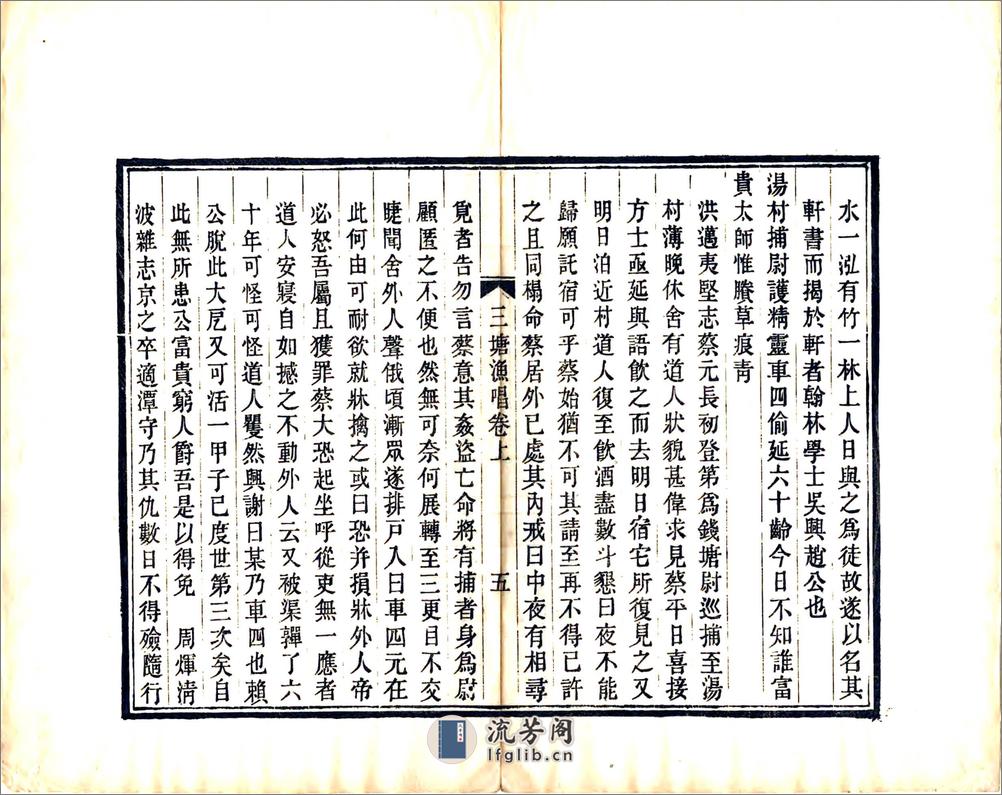 水一泓有竹一林上人日與之爲徒故遂以名其
軒書而揭於軒者翰林學士吳興趙公也
湯村捕尉護精靈車四偷延六十齡今日不知誰富
貴太師惟賸草痕靑
洪邁夷堅志蔡元長初登第爲錢塘尉巡捕至湯
村薄晚休舍有道人狀貌甚偉求見蔡平日喜接
方士亟延與語飮之而去明日宿宅所復見之又
明日泊近村道人復至飮酒盡數斗懇曰夜不能
歸願託宿可乎蔡始猶不可其請至再不得已許
之且同榻命蔡居外已處其內戒曰中夜有相尋
三塘漁唱卷上
五
覓者告勿言蔡意其姦盜亡命將有捕者身爲尉
顧匿之不便也然無可奈何展轉至三更目不交
睫聞舍外人聲俄頃漸眾遂排戸入曰車四元在
此何由可耐欲就牀擒之或曰恐并損牀外人帝
必怒吾屬且獲罪蔡大恐起坐呼從吏無一應者
道人安寢自如撼之不動外人云又被渠亸了六
十年可怪可怪道人矍然興謝曰某乃車四也賴
公脫此大厄又可活一甲子已度世第三次矣自
此無所患公富貴窮人爵吾是以得免　周煇清
波雜志京之卒適潭守乃其仇數日不得殮隨行
流芳阁
lfglib.cn